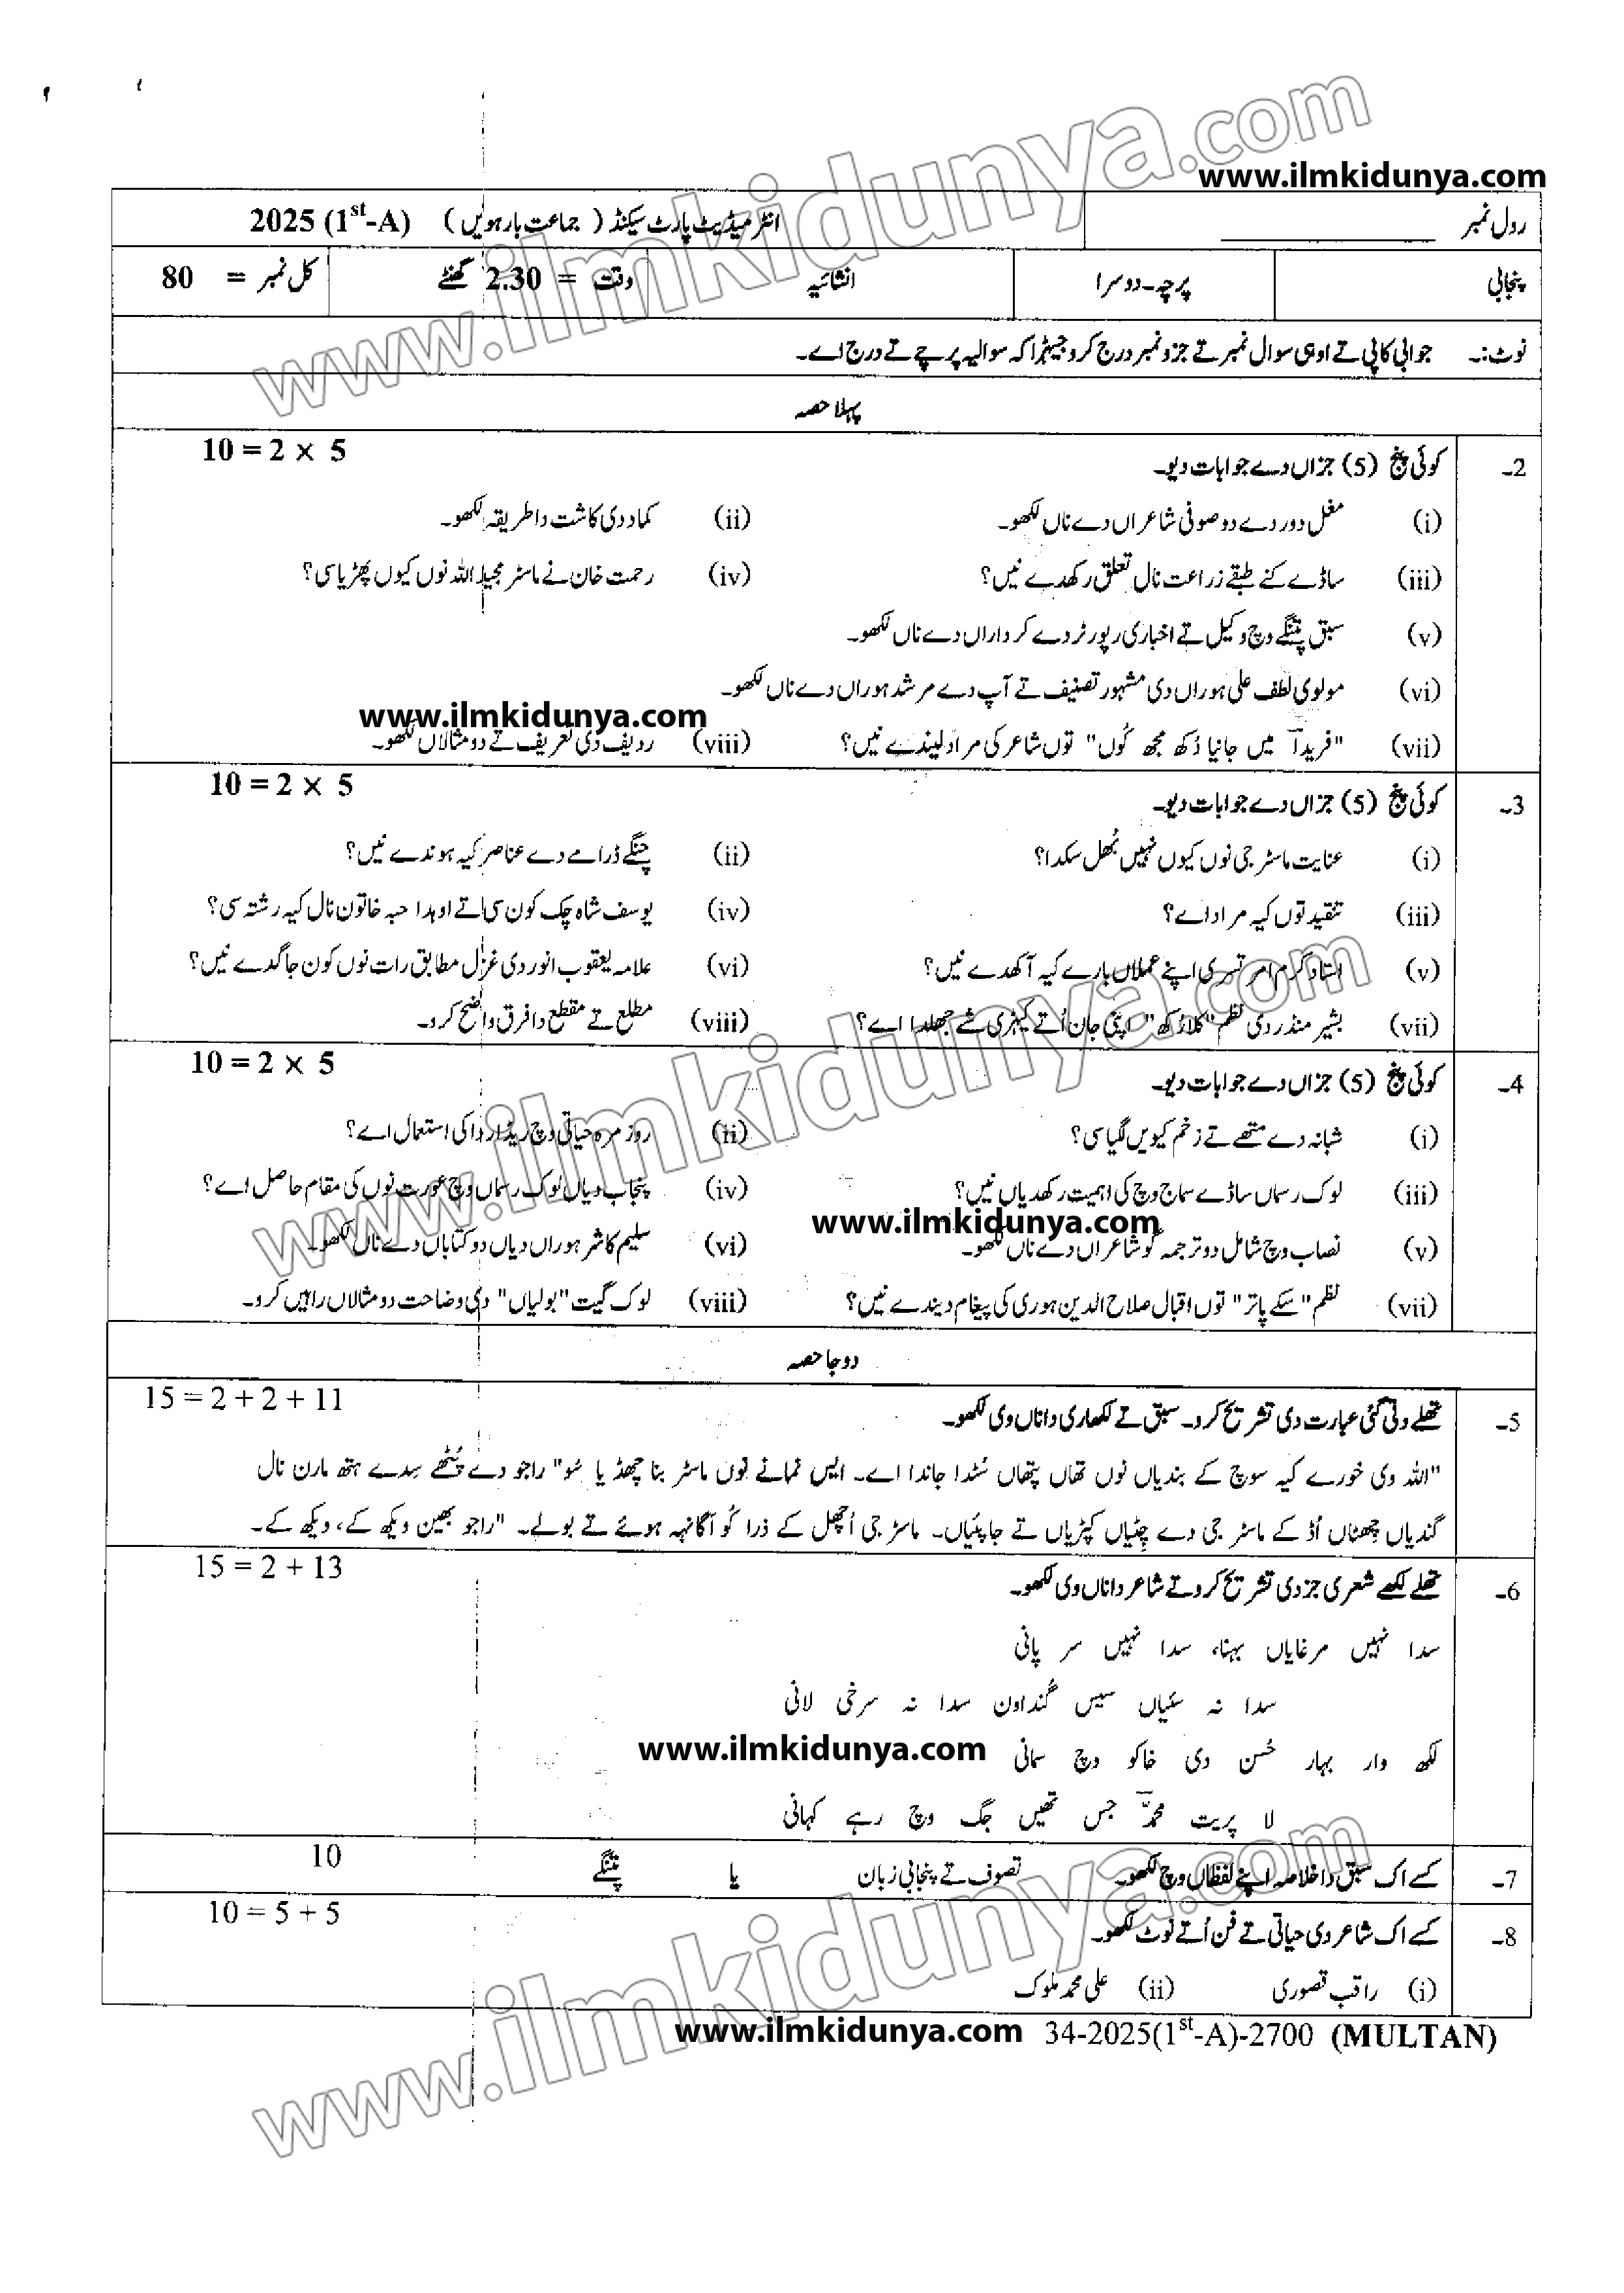 www.ilmkidunya.com
www.ilmkidunya.com
رول نمبر ____________ انٹرمیڈیٹ پارٹ سیکنڈ ( جماعت بارہویں ) 2025 (1st-A)
پنجابی پرچہ - دوسرا انشائیہ وقت = 2.30 گھنٹے کل نمبر = 80
نوٹ:۔ جوابی کاپی تے اوہی سوال نمبر تے جزو نمبر درج کرو جیہڑا کہ سوالیہ پرچے تے درج اے۔
پہلا حصہ
2۔ کوئی پنج (5) جزاں دے جوابات دیو۔ 10 = 2 × 5
(i) مغل دور دے دو صوفی شاعراں دے ناں لکھو۔ (ii) کماد دی کاشت دا طریقہ لکھو۔
(iii) ساڈے کنے طبقے زراعت نال تعلق رکھدے نیں؟ (iv) رحمت خان نے ماسٹر مجید اللہ نوں کیوں پھڑیا سی؟
(v) سبق پتنگے وچ وکیل تے اخباری رپورٹر دے کرداراں دے ناں لکھو۔
(vi) مولوی لطف علی ہوراں دی مشہور تصنیف تے آپ دے مرشد ہوراں دے ناں لکھو۔
www.ilmkidunya.com
(vii) "فریداؔ میں جانیا دُکھ مجھ کُوں" توں شاعر کی مراد لیندے نیں؟ (viii) ردیف دی تعریف تے دو مثالاں لکھو۔
3۔ کوئی پنج (5) جزاں دے جوابات دیو۔ 10 = 2 × 5
(i) عنایت ماسٹر جی نوں کیوں نہیں بُھل سکدا؟ (ii) چنگے ڈرامے دے عناصر کیہ ہوندے نیں؟
(iii) تنقید توں کیہ مراد اے؟ (iv) یوسف شاہ چک کون سی تے اوہدا حبہ خاتون نال کیہ رشتہ سی؟
(v) استاد کرم امرتسری اپنے عملاں بارے کیہ آکھدے نیں؟ (vi) علامہ یعقوب انور دی غزل مطابق رات نوں کون جاگدے نیں؟
(vii) بشیر منذر دی نظم "کلا رُکھ" اپنی جان اُتے کیہڑی شے جھلدا اے؟ (viii) مطلع تے مقطع دا فرق واضح کرو۔
www.ilmkidunya.com
4۔ کوئی پنج (5) جزاں دے جوابات دیو۔ 10 = 2 × 5
(i) شبانہ دے متھے تے زخم کیویں لگیا سی؟ (ii) روز مرہ حیاتی وچ ریڈار دا کی استعمال اے؟
(iii) لوک رسماں ساڈے سماج وچ کی اہمیت رکھدیاں نیں؟ (iv) پنجاب دیاں لوک رسماں وچ عورت نوں کی مقام حاصل اے؟
www.ilmkidunya.com
(v) نصاب وچ شامل دو ترجمہ گو شاعراں دے ناں لکھو۔ (vi) سلیم کاشر ہوراں دیاں دو کتاباں دے ناں لکھو۔
(vii) نظم "سکے پاتر" توں اقبال صلاح الدین ہوری کی پیغام دیندے نیں؟ (viii) لوک گیت "بولیاں" دی وضاحت دو مثالاں راہیں کرو۔
دوجا حصہ
5۔ تھلے دتی گئی عبارت دی تشریح کرو۔ سبق تے لکھاری دا ناں وی لکھو۔ 15 = 2 + 2 + 11
"اللہ وی خورے کیہ سوچ کے بندیاں نوں تھاں پتھاں سُٹدا جاندا اے۔ ایس نمانے نوں ماسٹر بنا چھڈ یا سُو" راجو دے پُٹھے سِدے ہتھ مارن نال
گندیاں چِھٹاں اُڈ کے ماسٹر جی دے چِٹیاں کپڑیاں تے جا پئیاں۔ ماسٹر جی اُچھل کے ذرا کُو آگانہہ ہوئے تے بولے۔ "راجو بھین ویکھ کے، ویکھ کے۔
6۔ تھلے لکھے شعری جز دی تشریح کرو تے شاعر دا ناں وی لکھو۔ 15 = 2 + 13
سدا نہیں مرغایاں بہنا، سدا نہیں سر پانی
سدا نہ سئیاں سیس گُنداون سدا نہ سرخی لانی
لکھ وار بہار حُسن دی خاکو وچ سمانی www.ilmkidunya.com
لا پریت محمدؔ جس تھیں جگ وچ رہے کہانی
7۔ کسے اک سبق دا خلاصہ اپنے لفظاں وچ لکھو۔ تصوف تے پنجابی زبان یا پتنگے 10
8۔ کسے اک شاعر دی حیاتی تے فن اُتے نوٹ لکھو۔ 10 = 5 + 5
(i) راقب قصوری (ii) علی محمد ملوک
www.ilmkidunya.com 34-2025(1st-A)-2700 (MULTAN)
www.ilmkidunya.com